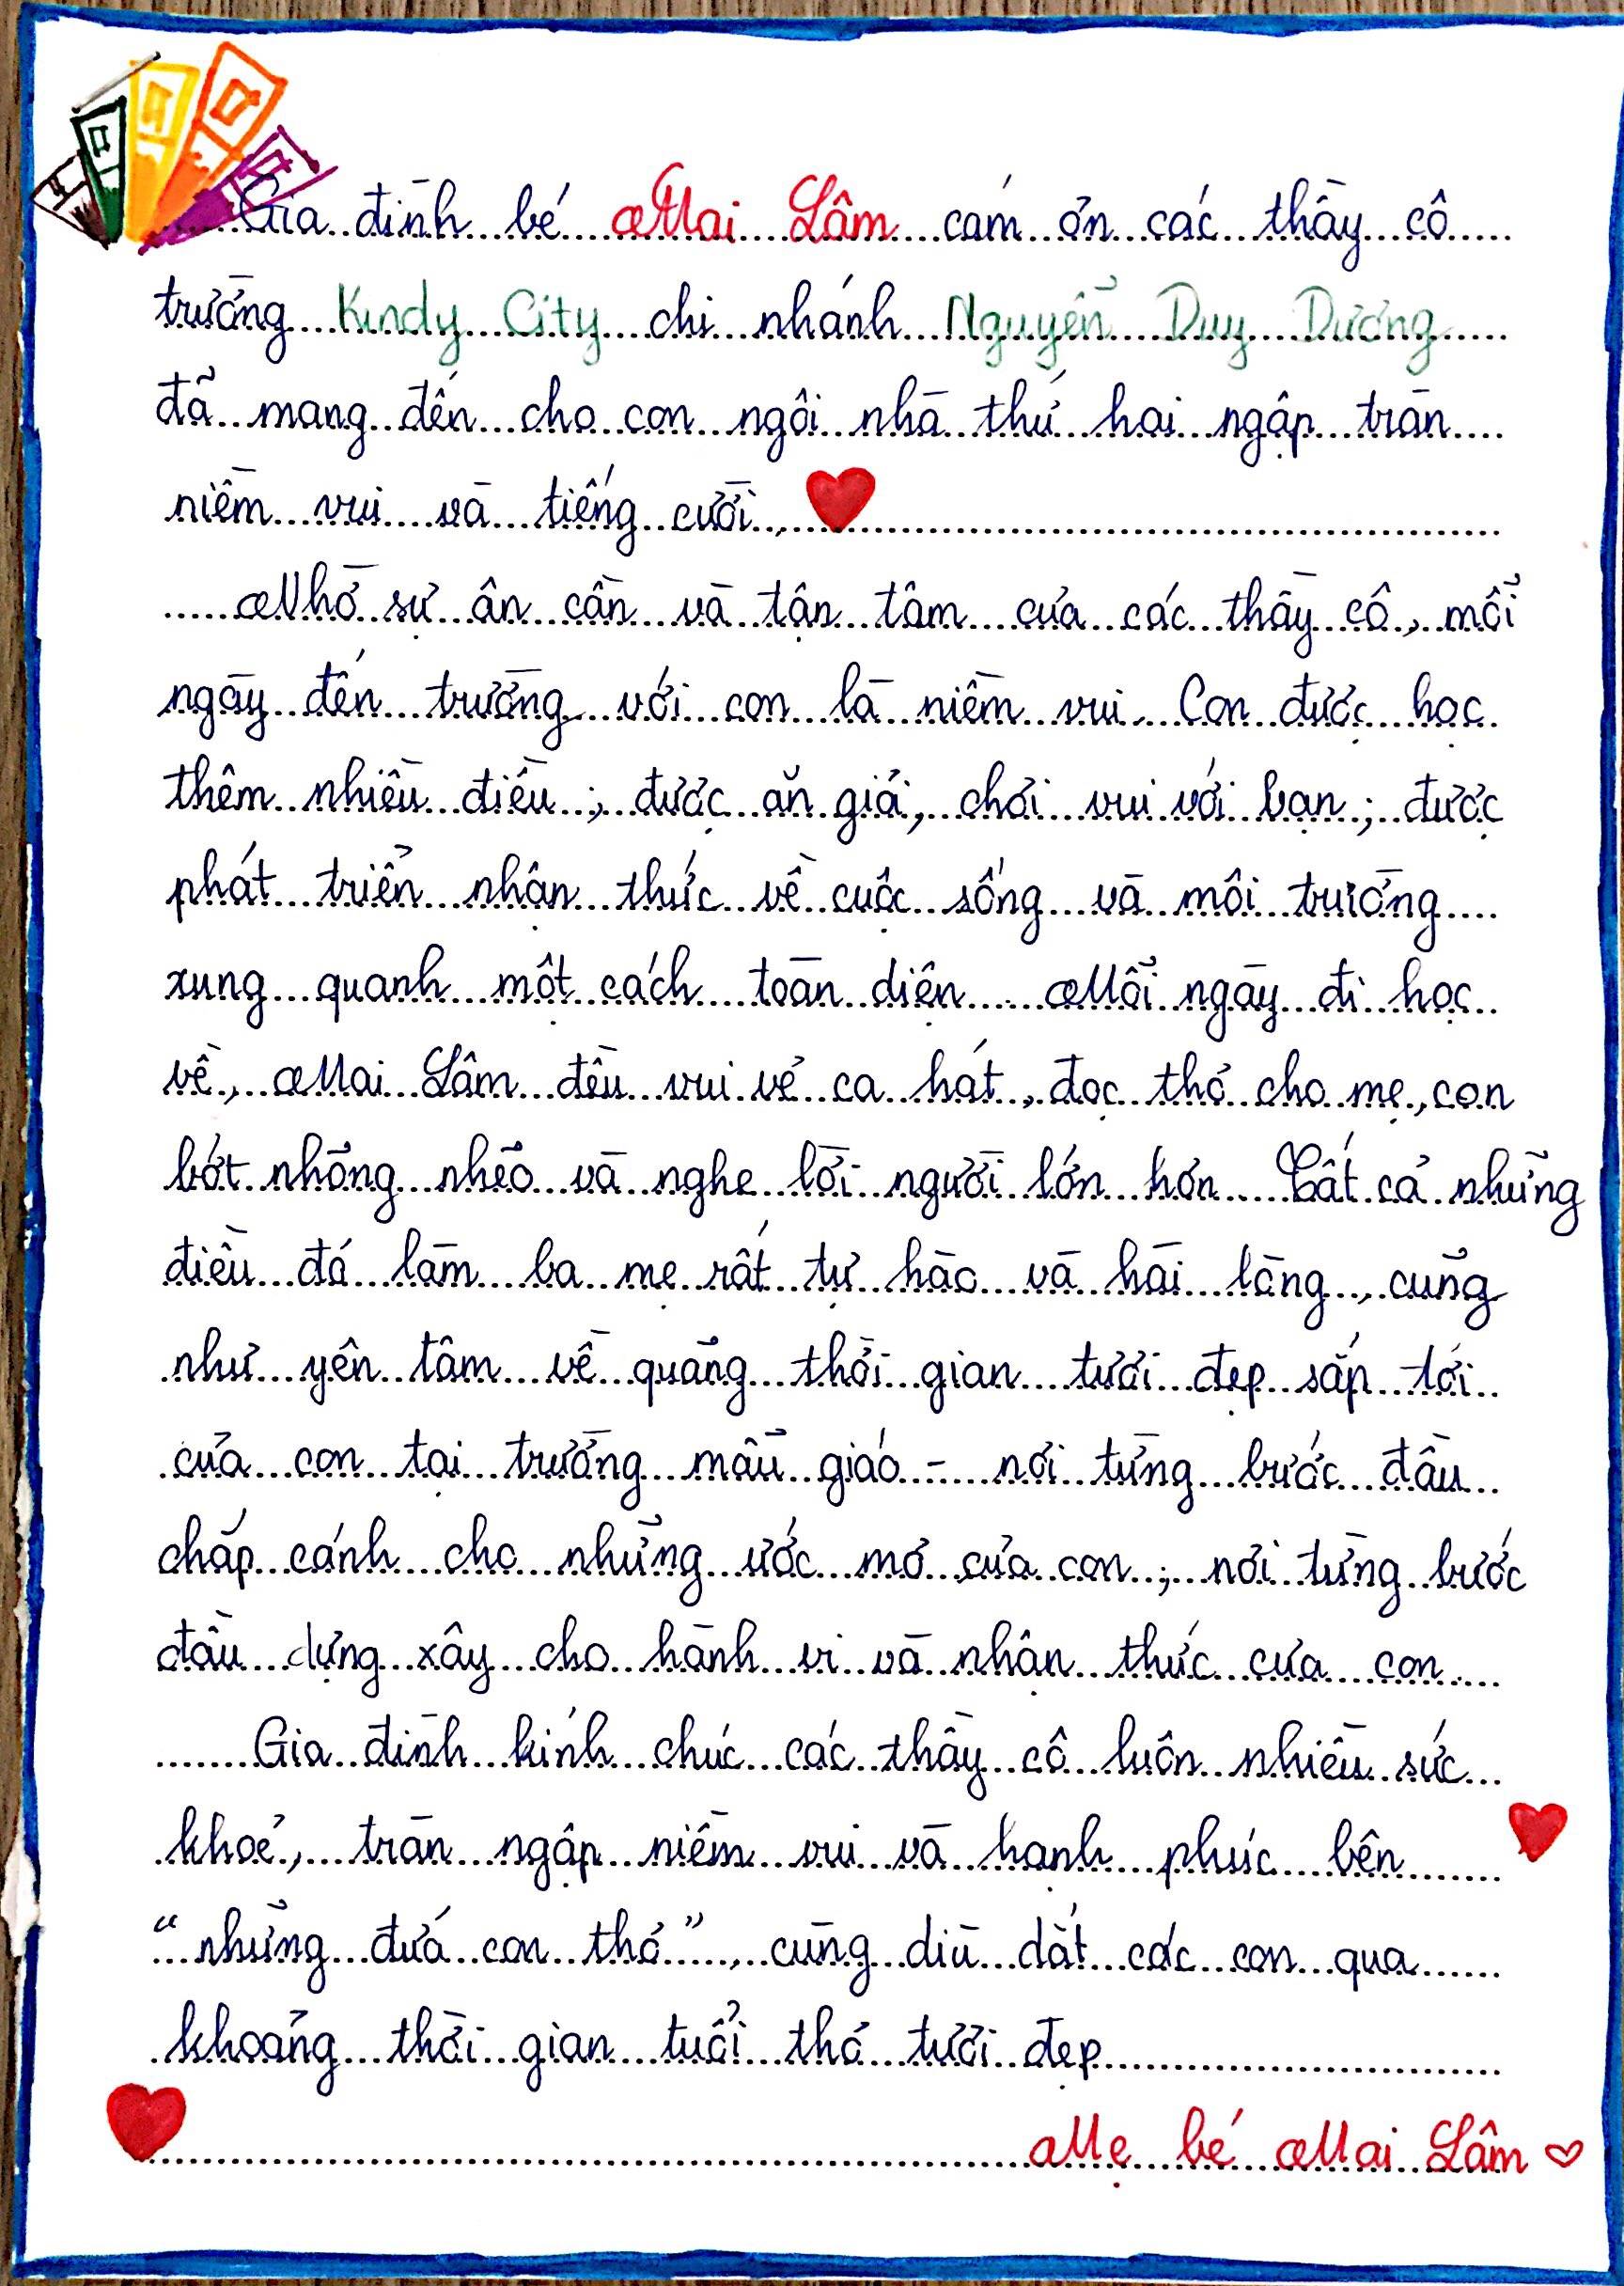 Gia đình bé Mai Lâm cám ơn các thầy cô
trường Kindy City chi nhánh Nguyễn Duy Dương
đã mang đến cho con ngôi nhà thứ hai ngập tràn
niềm vui và tiếng cười,
Nhờ sự ân cần và tận tâm của các thầy cô, mỗi
ngày đến trường với con là niềm vui. Con được học
thêm nhiều điều; được ăn giỏi, chơi vui với bạn; được
phát triển nhận thức về cuộc sống và môi trường
xung quanh một cách toàn diện. Mỗi ngày đi học
về, Mai Lâm đều vui vẻ ca hát, đọc thơ cho mẹ, con
bớt nhõng nhẽo và nghe lời người lớn hơn. Tất cả những
điều đó làm ba mẹ rất tự hào và hài lòng, cũng
như yên tâm về quãng thời gian tươi đẹp sắp tới
của con tại trường mẫu giáo - nơi từng bước đầu
chắp cánh cho những ước mơ của con; nơi từng bước
đầu dựng xây cho hành vi và nhận thức của con.
Gia đình kính chúc các thầy cô luôn nhiều sức
khoẻ, tràn ngập niềm vui và hạnh phúc bên
"những đứa con thơ", cùng dìu dắt các con qua
khoảng thời gian tuổi thơ tươi đẹp.
Mẹ bé Mai Lâm ♡